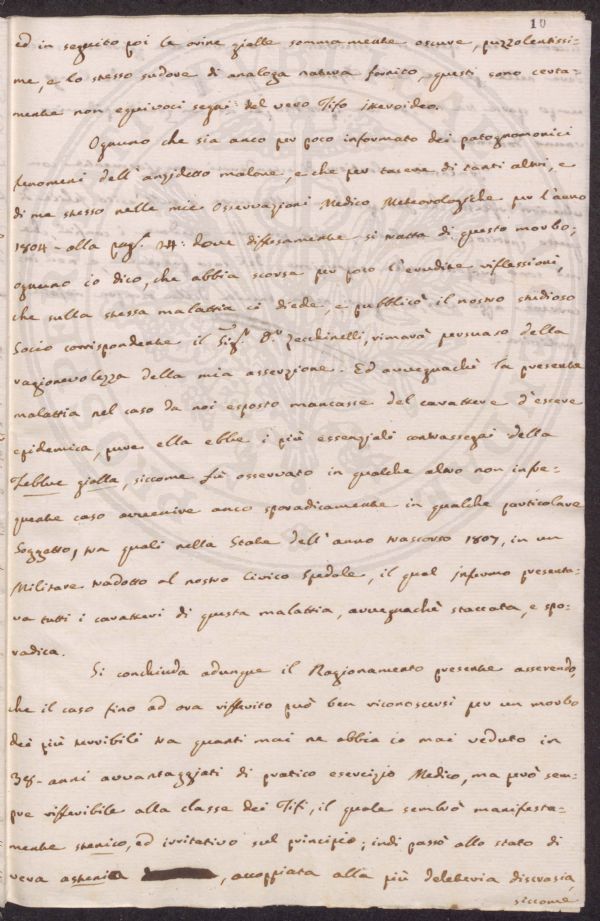 10
ed in seguito poi le orine gialle sommamente oscure, puzzolentissi-
me, e lo stesso sudore di analoga natura fornito, questi sono certa-
mente non equivoci segni del vero Tifo Itteroideo.
Ognuno che sia anco per poco informato dei patognomonici
fenomeni dell'anzidetto malore, e che per tacere di tanti altri, e
di me stesso nelle mie Osservazioni Medico Meteorologiche per l'anno
1804 - alla pag.ª 24: dove diffusamente si tratta di questo morbo;
ognuno io dico, che abbia scorse per poco l'erudite riflessioni,
che sulla stessa malattia ci diede, e pubblicò il nostro studioso
Socio corrispondente il Sig.r D.r Zecchinelli, rimarà persuaso della
ragionevolezza della mia asserzione. Ed avvegnachè la presente
malattia nel caso da noi esposto mancasse del carattere d'essere
epidemica, pure ella ebbe i più essenziali contrassegni della
Febbre gialla, siccome fù osservato in qualche altro non infre-
quente caso avvenire anco sporadicamente in qualche particolare
Soggetto, tra quali nella State dell'anno trascorso 1807, in un
Militare tradotto al nostro Civico Spedale, il qual infermo presenta-
va tutti i caratteri di questa malattia, avvegnachè staccata, e spo-
radica.
Si conchiuda adunque il Ragionamento presente asserendo,
che il caso fino ad ora riferito può ben riconoscersi per un morbo
dei più terribili tra quanti mai ne abbia io mai veduto in
38 - anni avvantaggiati di pratico esercizio Medico, ma però sem-
pre riferibile alla classe dei Tifi, il quale sembrò manifesta-
mente stenico, ed irritativo sul principio; indi passò allo stato di
vera astenia , accoppiata alla più deleteria discrasia,
siccome